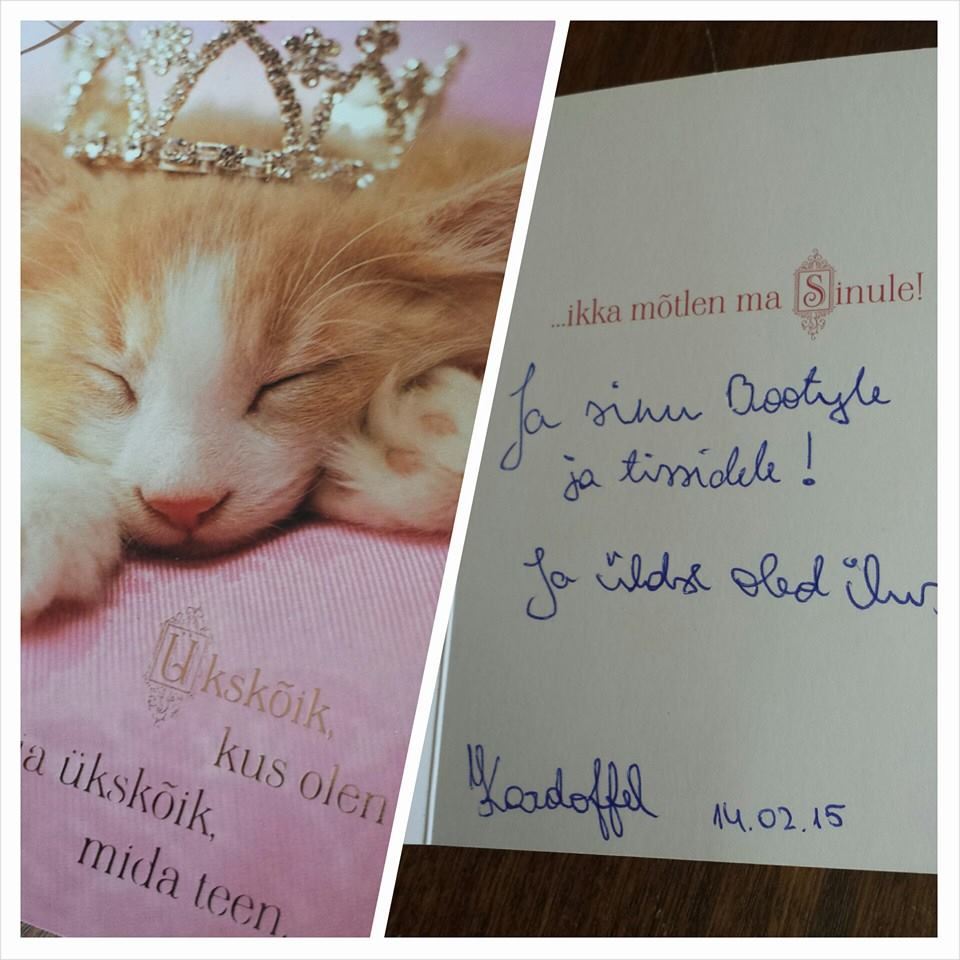 Ükskõik,
kus olen
ja ükskõik,
mida teen,
...ikka mõtlen ma Sinule!
Ja sinu Bootyle
ja tissidele!
Ja üldse oled ilus
Kardoffel
14.02.15